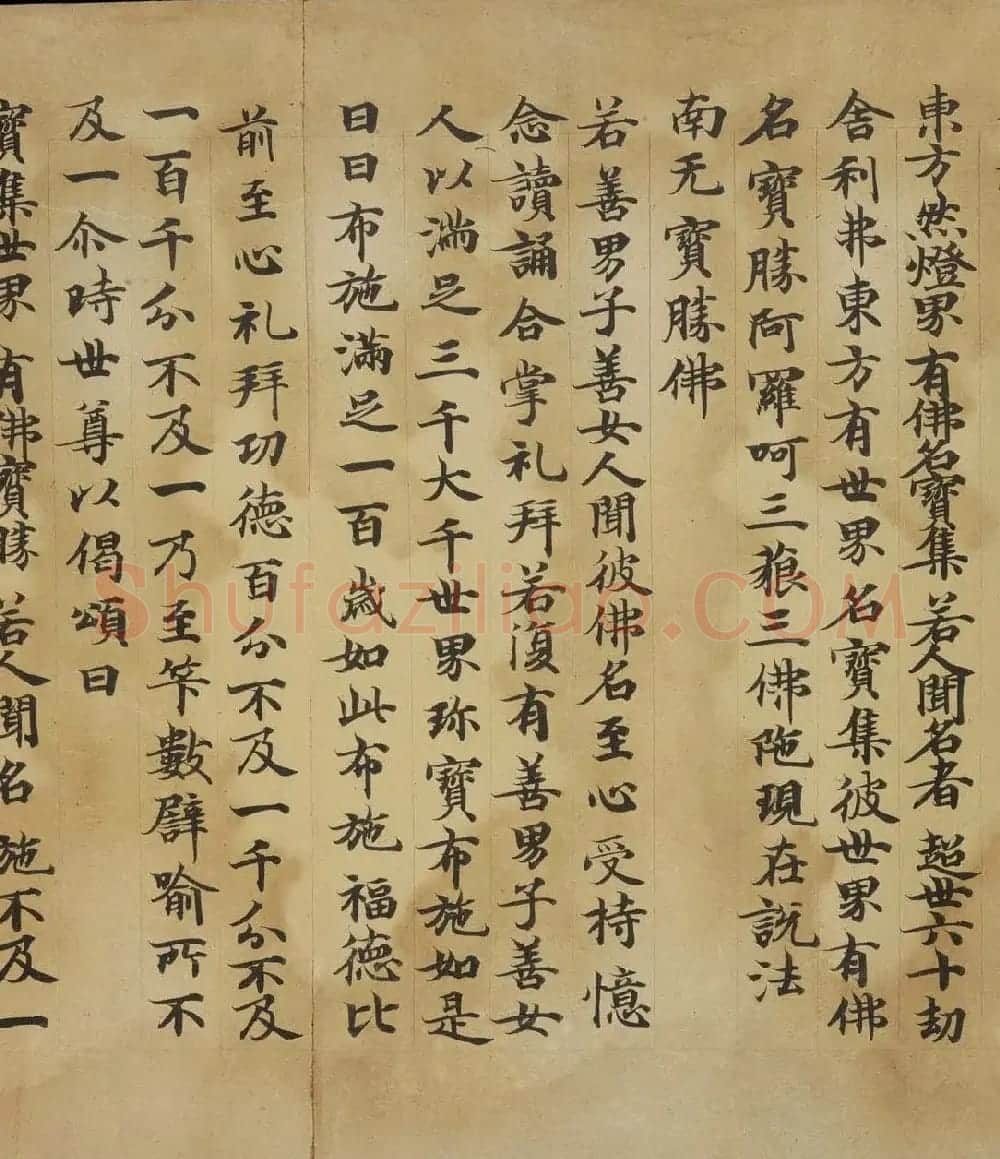 東方然燈界 有佛名寶集 若人聞名者 超世六十劫
舍利弗東方有世界名寶集彼世界有佛
名寶勝阿羅呵三藐三佛陁現在說法
南无寶勝佛
若善男子善女人聞彼佛名至心受持憶
念讀誦合掌礼拜若復有善男子善女
人以満足三千大千世界珎寶布施如是
日日布施滿足一百歲如此布施福德比
前至心礼拜功德百分不及一千分不及
一百千分不及一乃至笇數譬喻所不
及一尒時世尊以偈頌曰
寶集世界 有佛寶勝 若人聞名 施不及一
Shufaziliao.COM